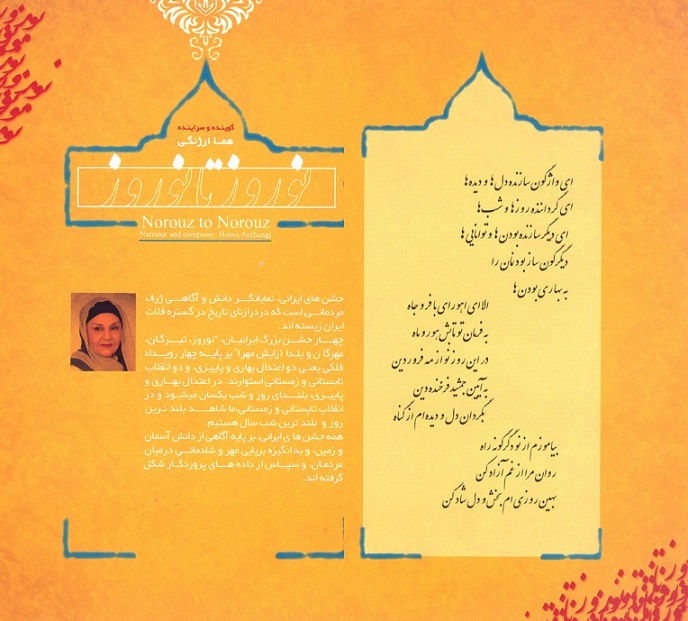 گوینده و سراینده
هما ارژنگی
نوروز تا نوروز
Norouz to Norouz
Narrator and composer: Homa Arzhangi
جشن های ایرانی، نمایانگر دانش و آگاهی ژرف
مردمانی است که در درازنای تاریخ در گستره فلات
ایران زیسته اند.
چهار جشن بزرگ ایرانیان، "نوروز، تیرگان،
مهرگان و یلدا (زایش مهر)" بر پایه چهار رویداد
فلکی یعنی دو اعتدال بهاری و پاییزی، و دو انقلاب
تابستانی و زمستانی استوارند. در اعتدال بهاری و
پاییزی، بلندای روز و شب یکسان میشود و در
انقلاب تابستانی و زمستانی،ما شاهد بلند ترین
روز و بلند ترین شب سال هستیم.
همه جشن های ایرانی، بر پایه آگاهی از دانش آسمان
و زمین، و به انگیزه برپایی مهر و شادمانی درمیان
مردمان، و سپاس از داده های پروردگار شکل
گرفته اند.
ای واژگون سازنده دل ها و دیده ها
ای گرداننده روزها و شب ها
ای دیگر سازنده بودن ها و توانایی ها
دیگرگون ساز بودنمان را
به بهاری بودن ها
الا ای اهورای با فر و جاه
به فرمان تو تابش هور و ماه
در این روز نو از مه فرودین
به آیین جمشید فرخنده دین
بگردان دل و دیده ام از گناه
بیاموزم از نو دگرگونه راه
روان مرا از غم آزاد کن
بهین روزی ام بخش و دل شاد کن